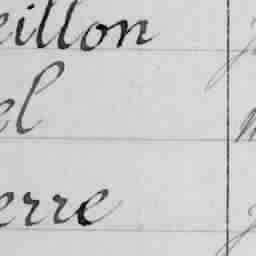 eillon
el
erre